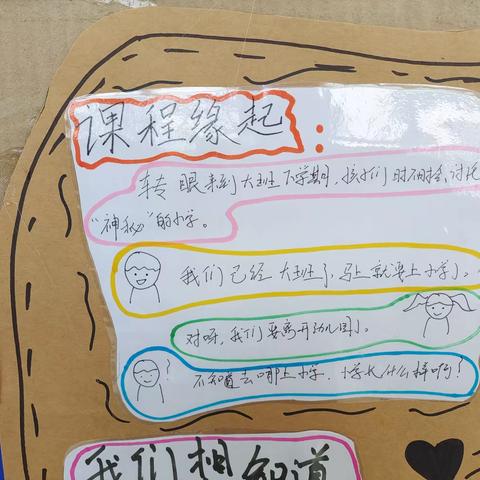 课程缘起:
转眼来到大班下学期,孩子们时不时会讨论
“神秘”的小学。
我们已经大班了,马上就要上小学了。
对呀,我们要离开幼儿园了。
不知道去哪上小学,小学长什么样呀?
?
我们想知道